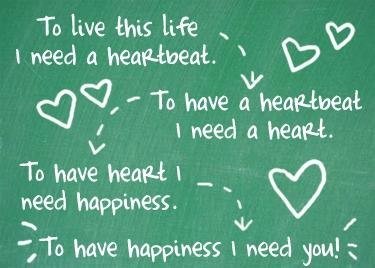 To live this life
I need a heartbeat.
To have a heartbeat
I need a heart.
To have heart I
need happiness.
To have happiness I need you!